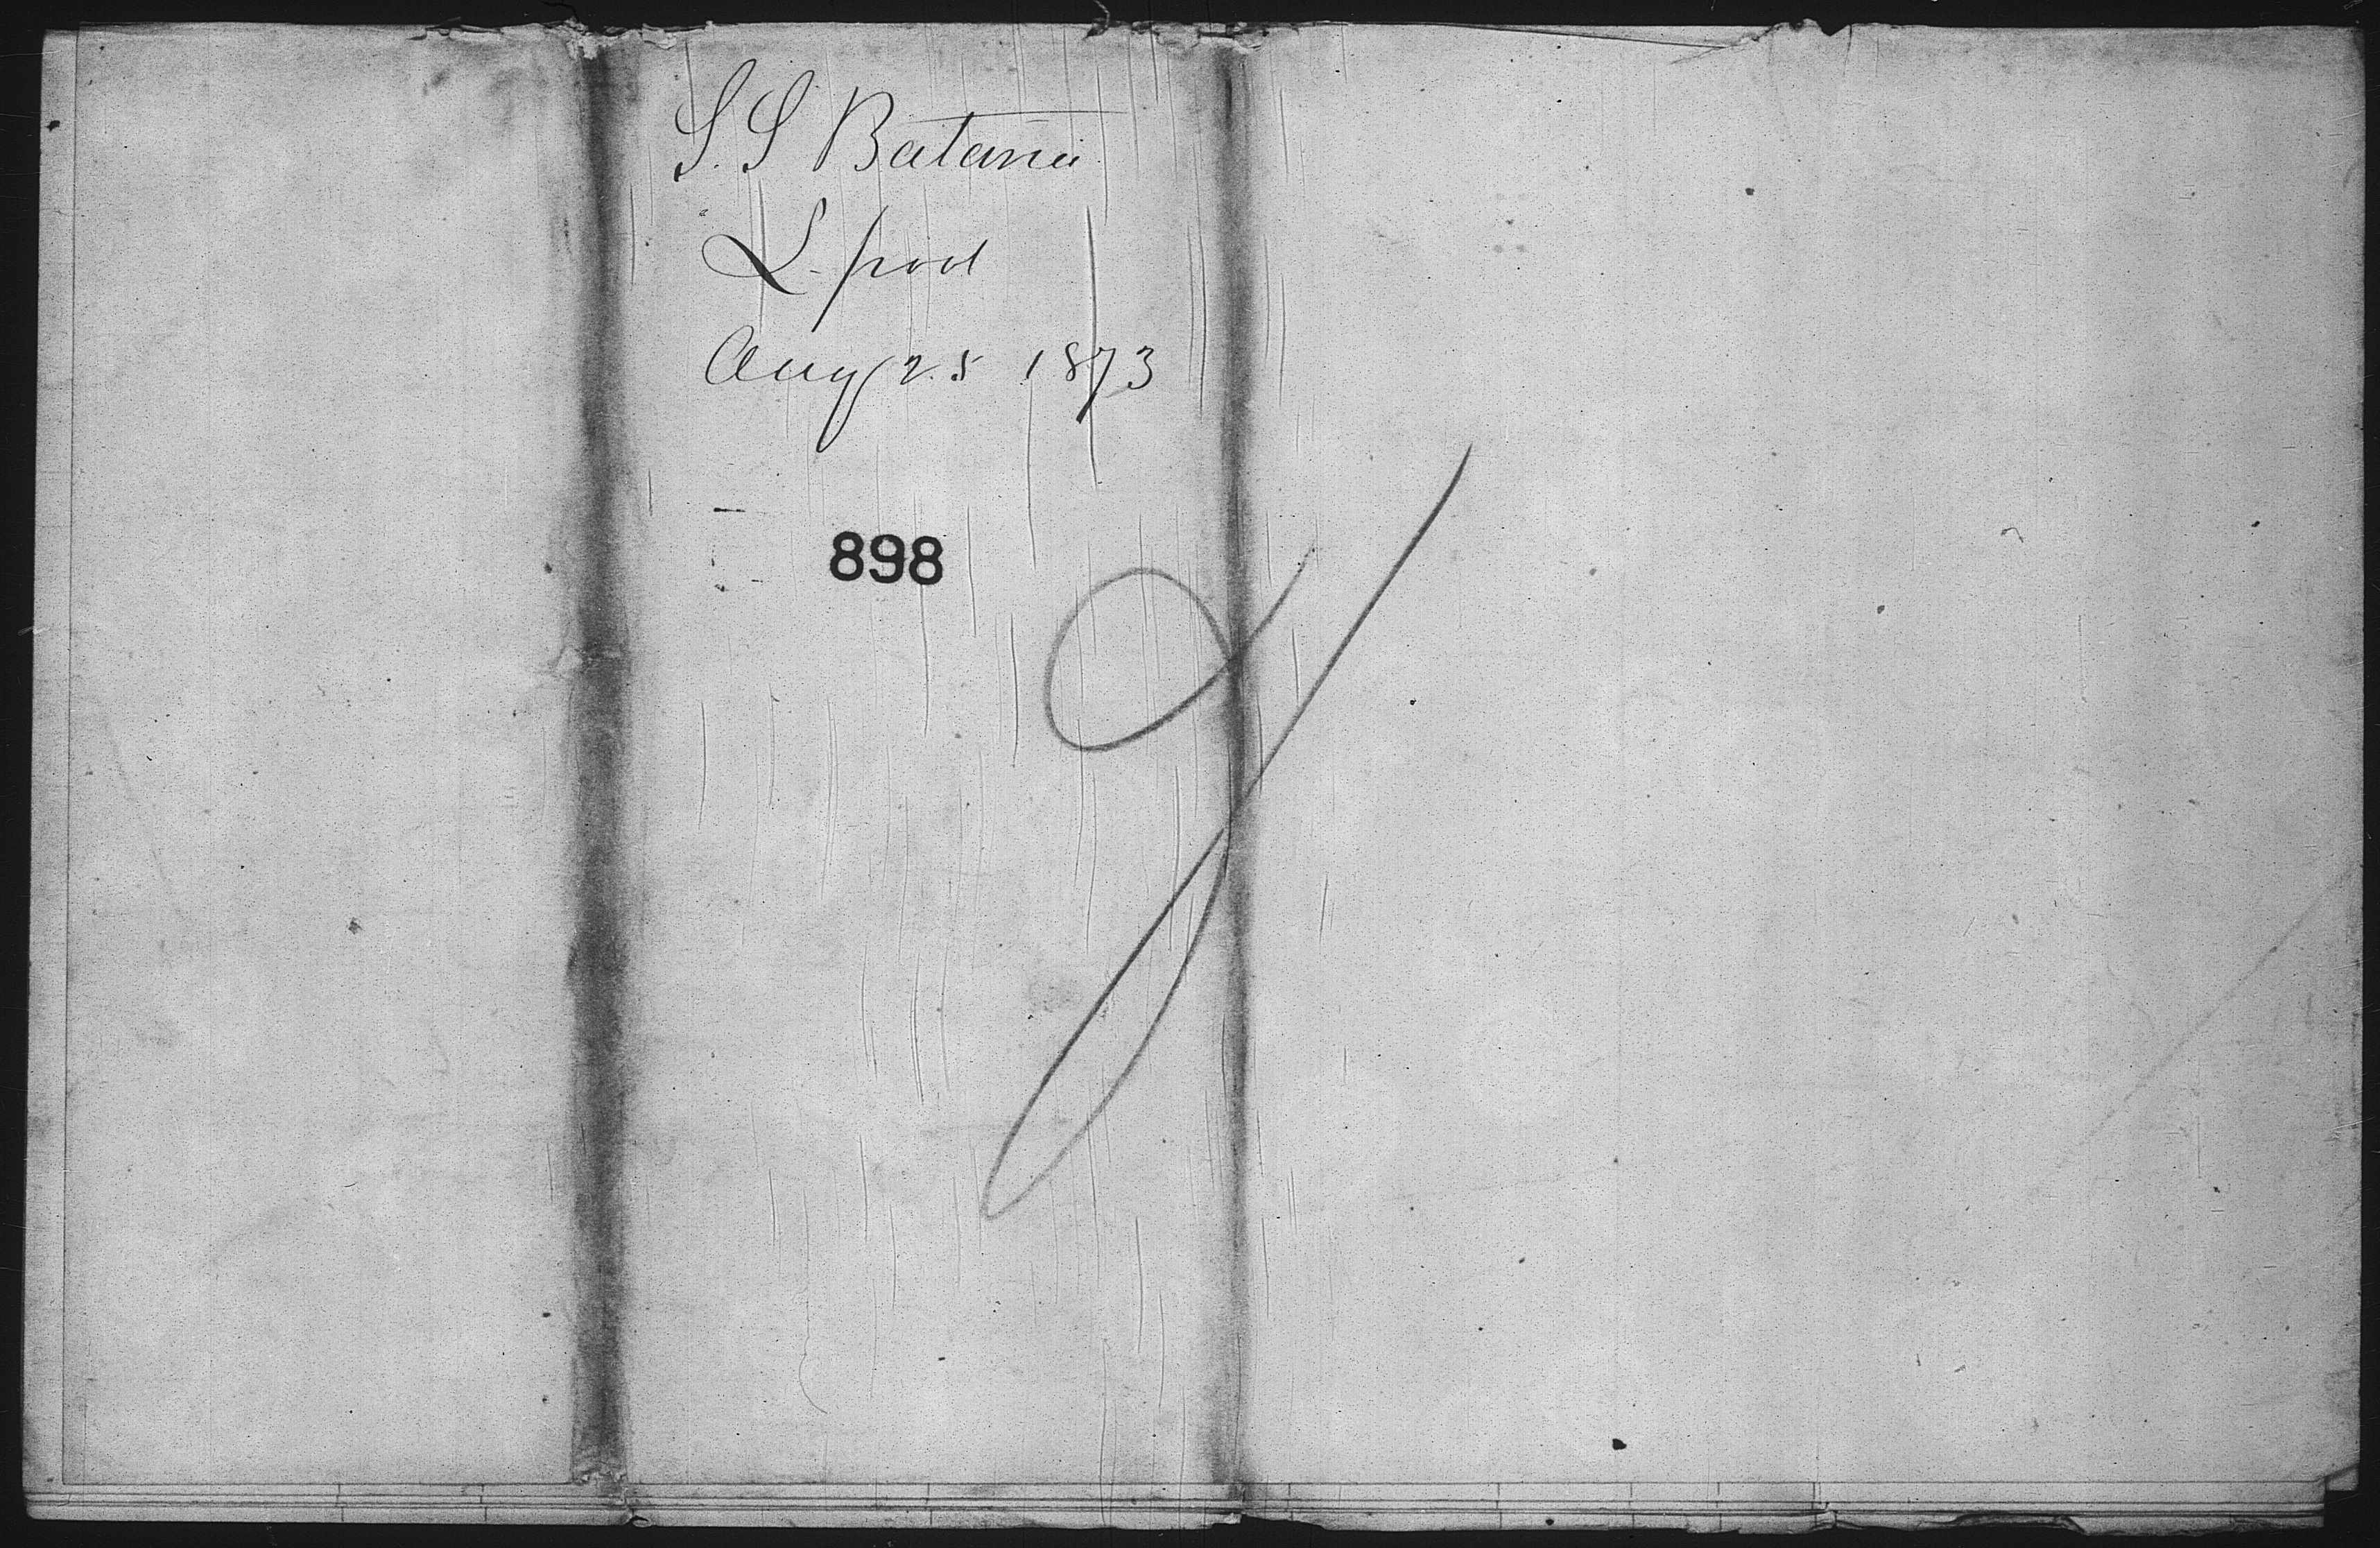 S.S Batavia
L.pool
Aug 25 1873
898